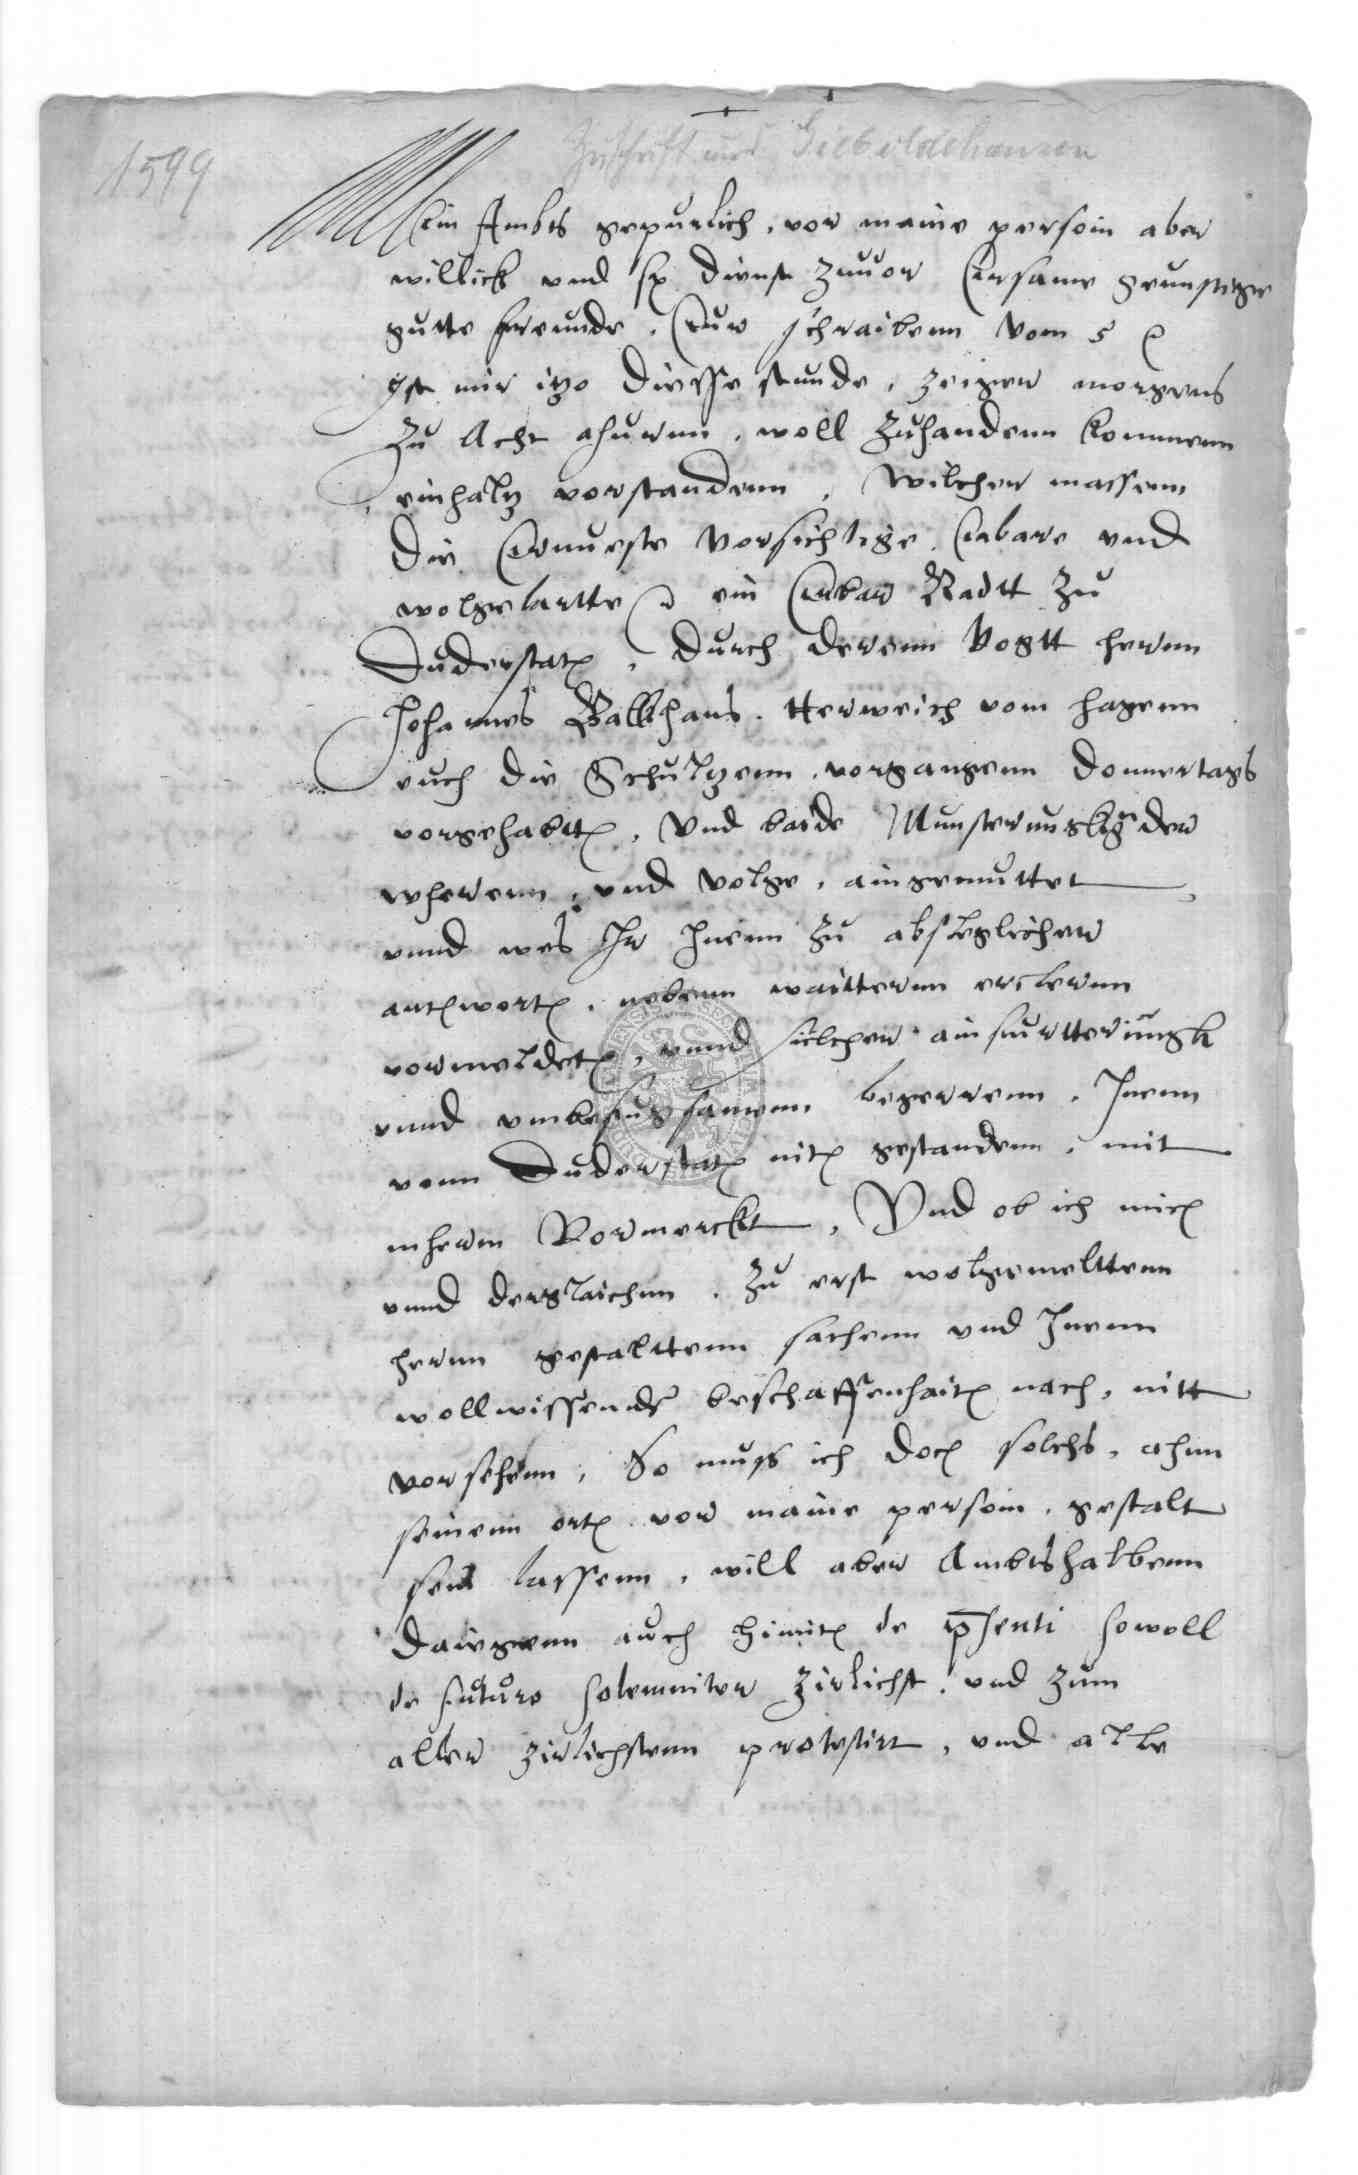 1599
Zuschrift aus Gieboldehausen
Mein Ambts gepurlich, vor maine persoin aber
willick vnd sp dienst zuuor Ersame geunstige
gutte freunde. Euw schraibenn vom 5 
Ist mir itzo diesse stunde, zeiger morgens
Zu Acht ahurnn, woll zuhandenn kommenn
einhaltz vorstandenn, Wilcher massenn
die Ernueste vorsichtige Erbare vnd
wolgelartte ein Erbar Radtt zu
Duderstatt, durch derenn Vogtt hernn
Johannes Ballthaus. Herweich vom hagenn
auch die Schultzenn vorgangenn donnertags
vorgehabtt, Vnd baide Munsterungk der
wherenn, vnd volge, aingemuttet
vnnd wes Ir Inenn zu abschleglicher
anttwortt, nebenn waitternn erclernn
vormeldett, vnnd silcher ainfurtterungk
vnnd vmbefugsamenn begerrenn, Inenn
vonn Duderstatt nitt gestandenn, mit
mherm Vormerckt, Vnd ob ich mich
vnnd dergleichenn, Zu erst wolgemelttenn
hernn gestalttenn sachenn vnd Inenn
wollwissender beschaffenhaitt nach, nitt
vorsehenn, So muss ich doch solchs, ahnn
seinenn ortt vor maine persoin, gestalt
sein lassenn, will aber Ambtshalbenn
daiegenn auch himitt de p̄senti sowoll
de futuro solemniter zirlichst, vnd zum
aller zirlichstenn protestirt, vnd alle